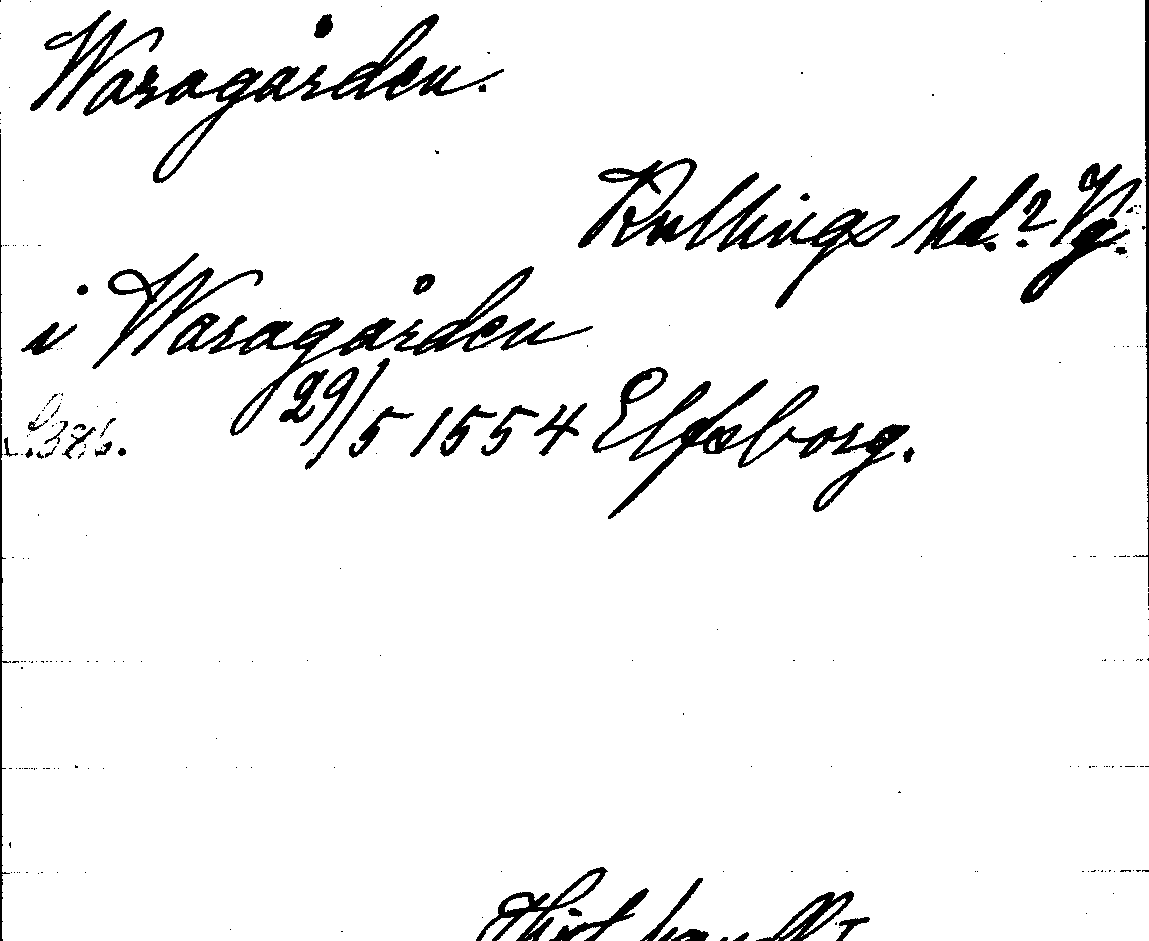 Waragården.
Kullings hd.? Vg.
i Waragården
S. 386. 29/5 1554 Elfsborg.